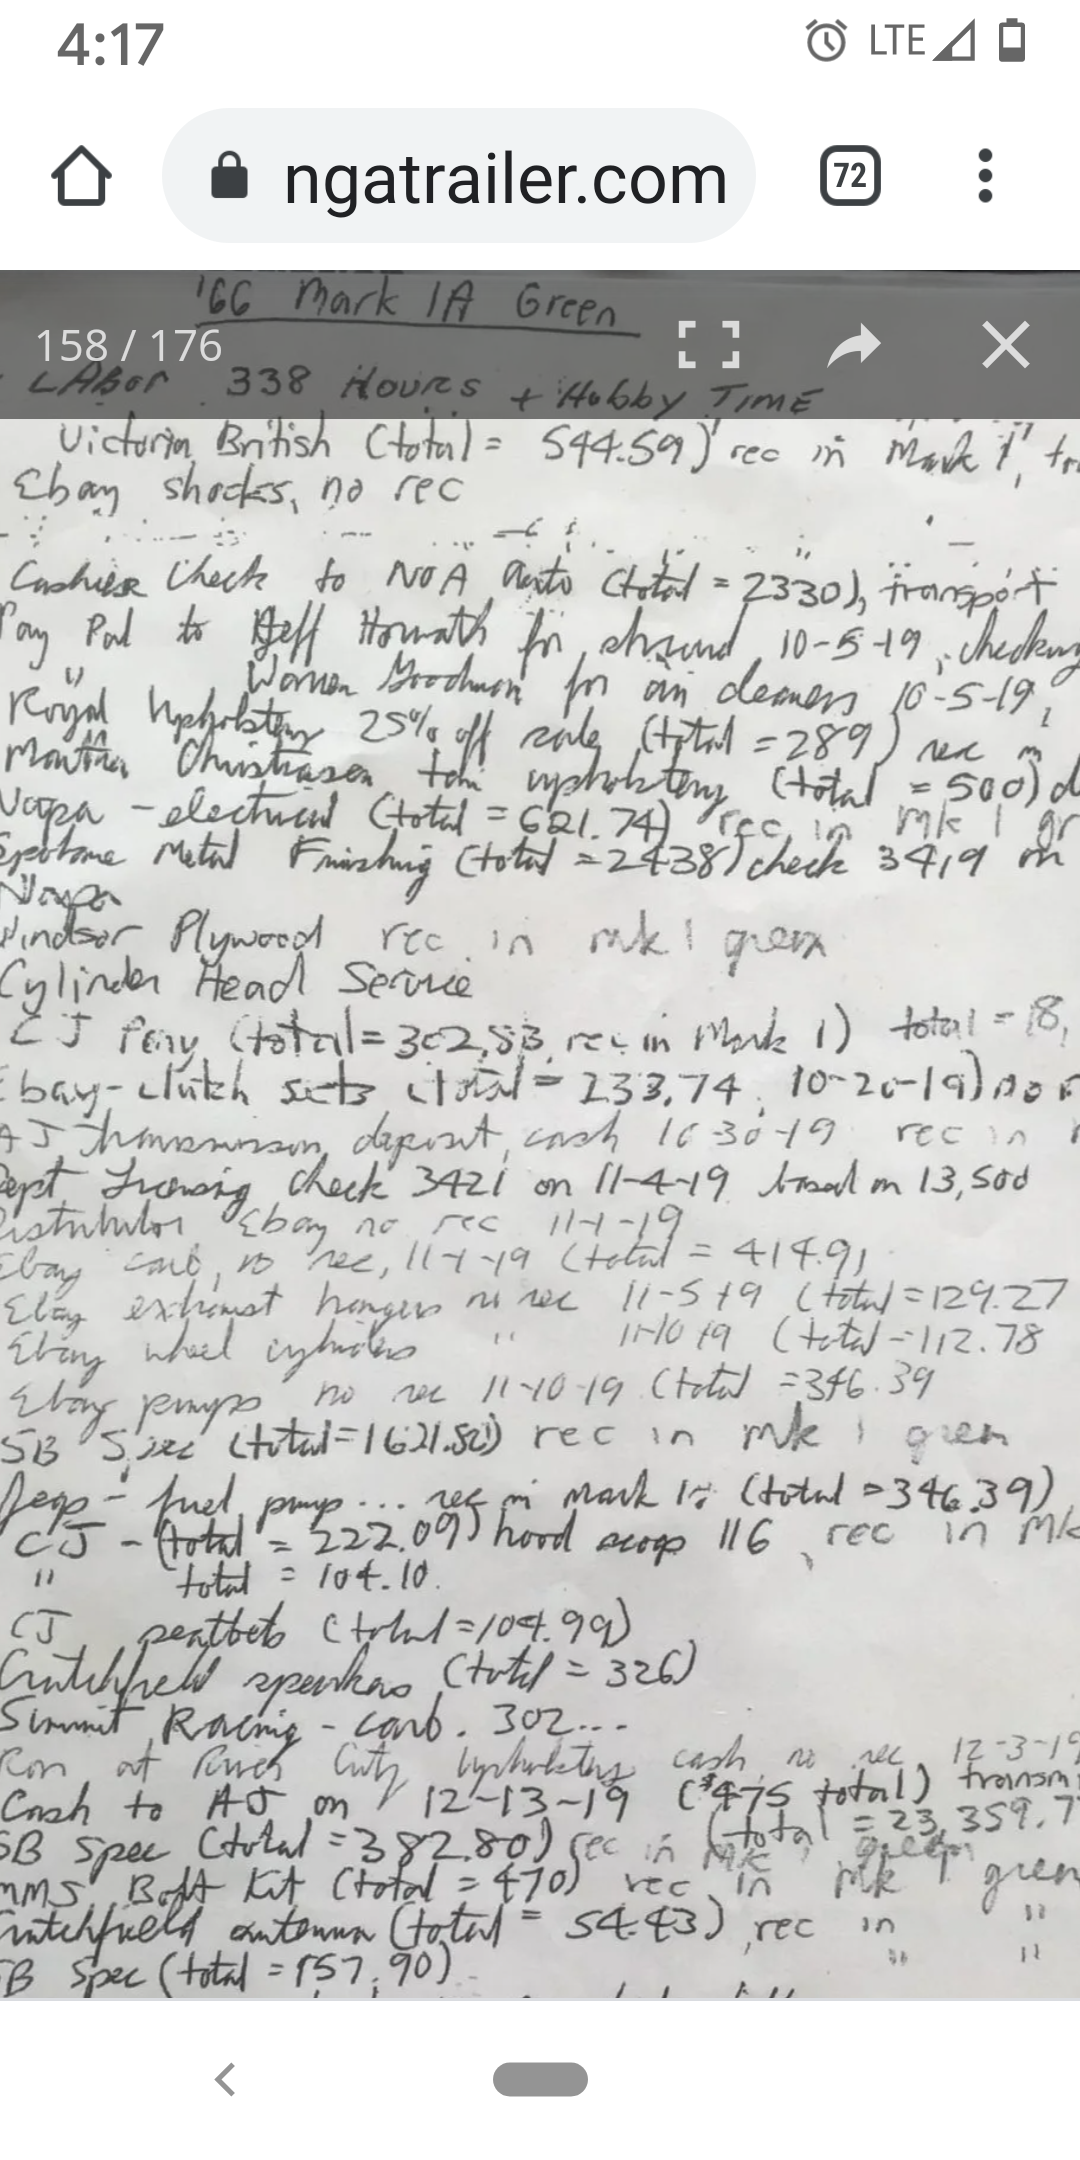 4:17
LTE
ngatrailer.com
72
'66 Mark 1A Green
158 / 176
LABor 338 Hours + Hobby TIME
Victoria British (total = 544.59) rec in Mark 1,
Ebay shocks, no rec
Cashier Check to NOA Auto (total = 2330), transport
Pay Pal to Jeff Horvath for shroud 10-5-19, checking
" Warren Goodman for air cleaners 10-5-19,
Royal Upholstery 25% off sale (total = 289) rec in
Christiasen upholstery (total = 500)
Napa - electrical (total = 621.74) rec in mk 1 gr
Spokane Metal Finishing (total = 2438) check 3419 on
Napa
Windsor Plywood rec in mk 1 green
Cylinder Head Service
CJ Pony (total = 302.83, rec in Mark 1) total = 18,
Ebay - clutch sets (total = 233.74, 10-20-19) no r
AJ Transmission deposit, cash 10-30-19 rec in
Dept Licensing check 3421 on 11-4-19 based on 13,500
Distributor Ebay no rec 11-1-19
Ebay carb, no rec, 11-1-19 (total = 414.91
Ebay exhaust hangers no rec 11-5-19 (total = 129.27
Ebay wheel cylinders " 11-10-19 (total = 112.78
Ebay pumps no rec 11-10-19 (total = 346.39
SB Spec (total = 1621.80) rec in mk 1 green
Jegs - fuel pump ... rec in Mark 1 (total = 346.39)
CJ - (total = 222.09) hood scoop 116, rec in Mk
" total = 104.10.
CJ seatbelts (total = 104.99)
Crutchfield speakers (total = 326)
Summit Racing - carb. 302...
Ron at City Upholstery cash, no rec, 12-3-19
Cash to AJ on 12-13-19 ($475 total) transm
(total = 23,359.7
SB Spec (total = 382.80) rec in mk 1 green
MMS Bolt Kit (total = 470) rec in mk 1 green
Crutchfield antenna (total = 54.43), rec in "
SB Spec (total = 157.90) " "